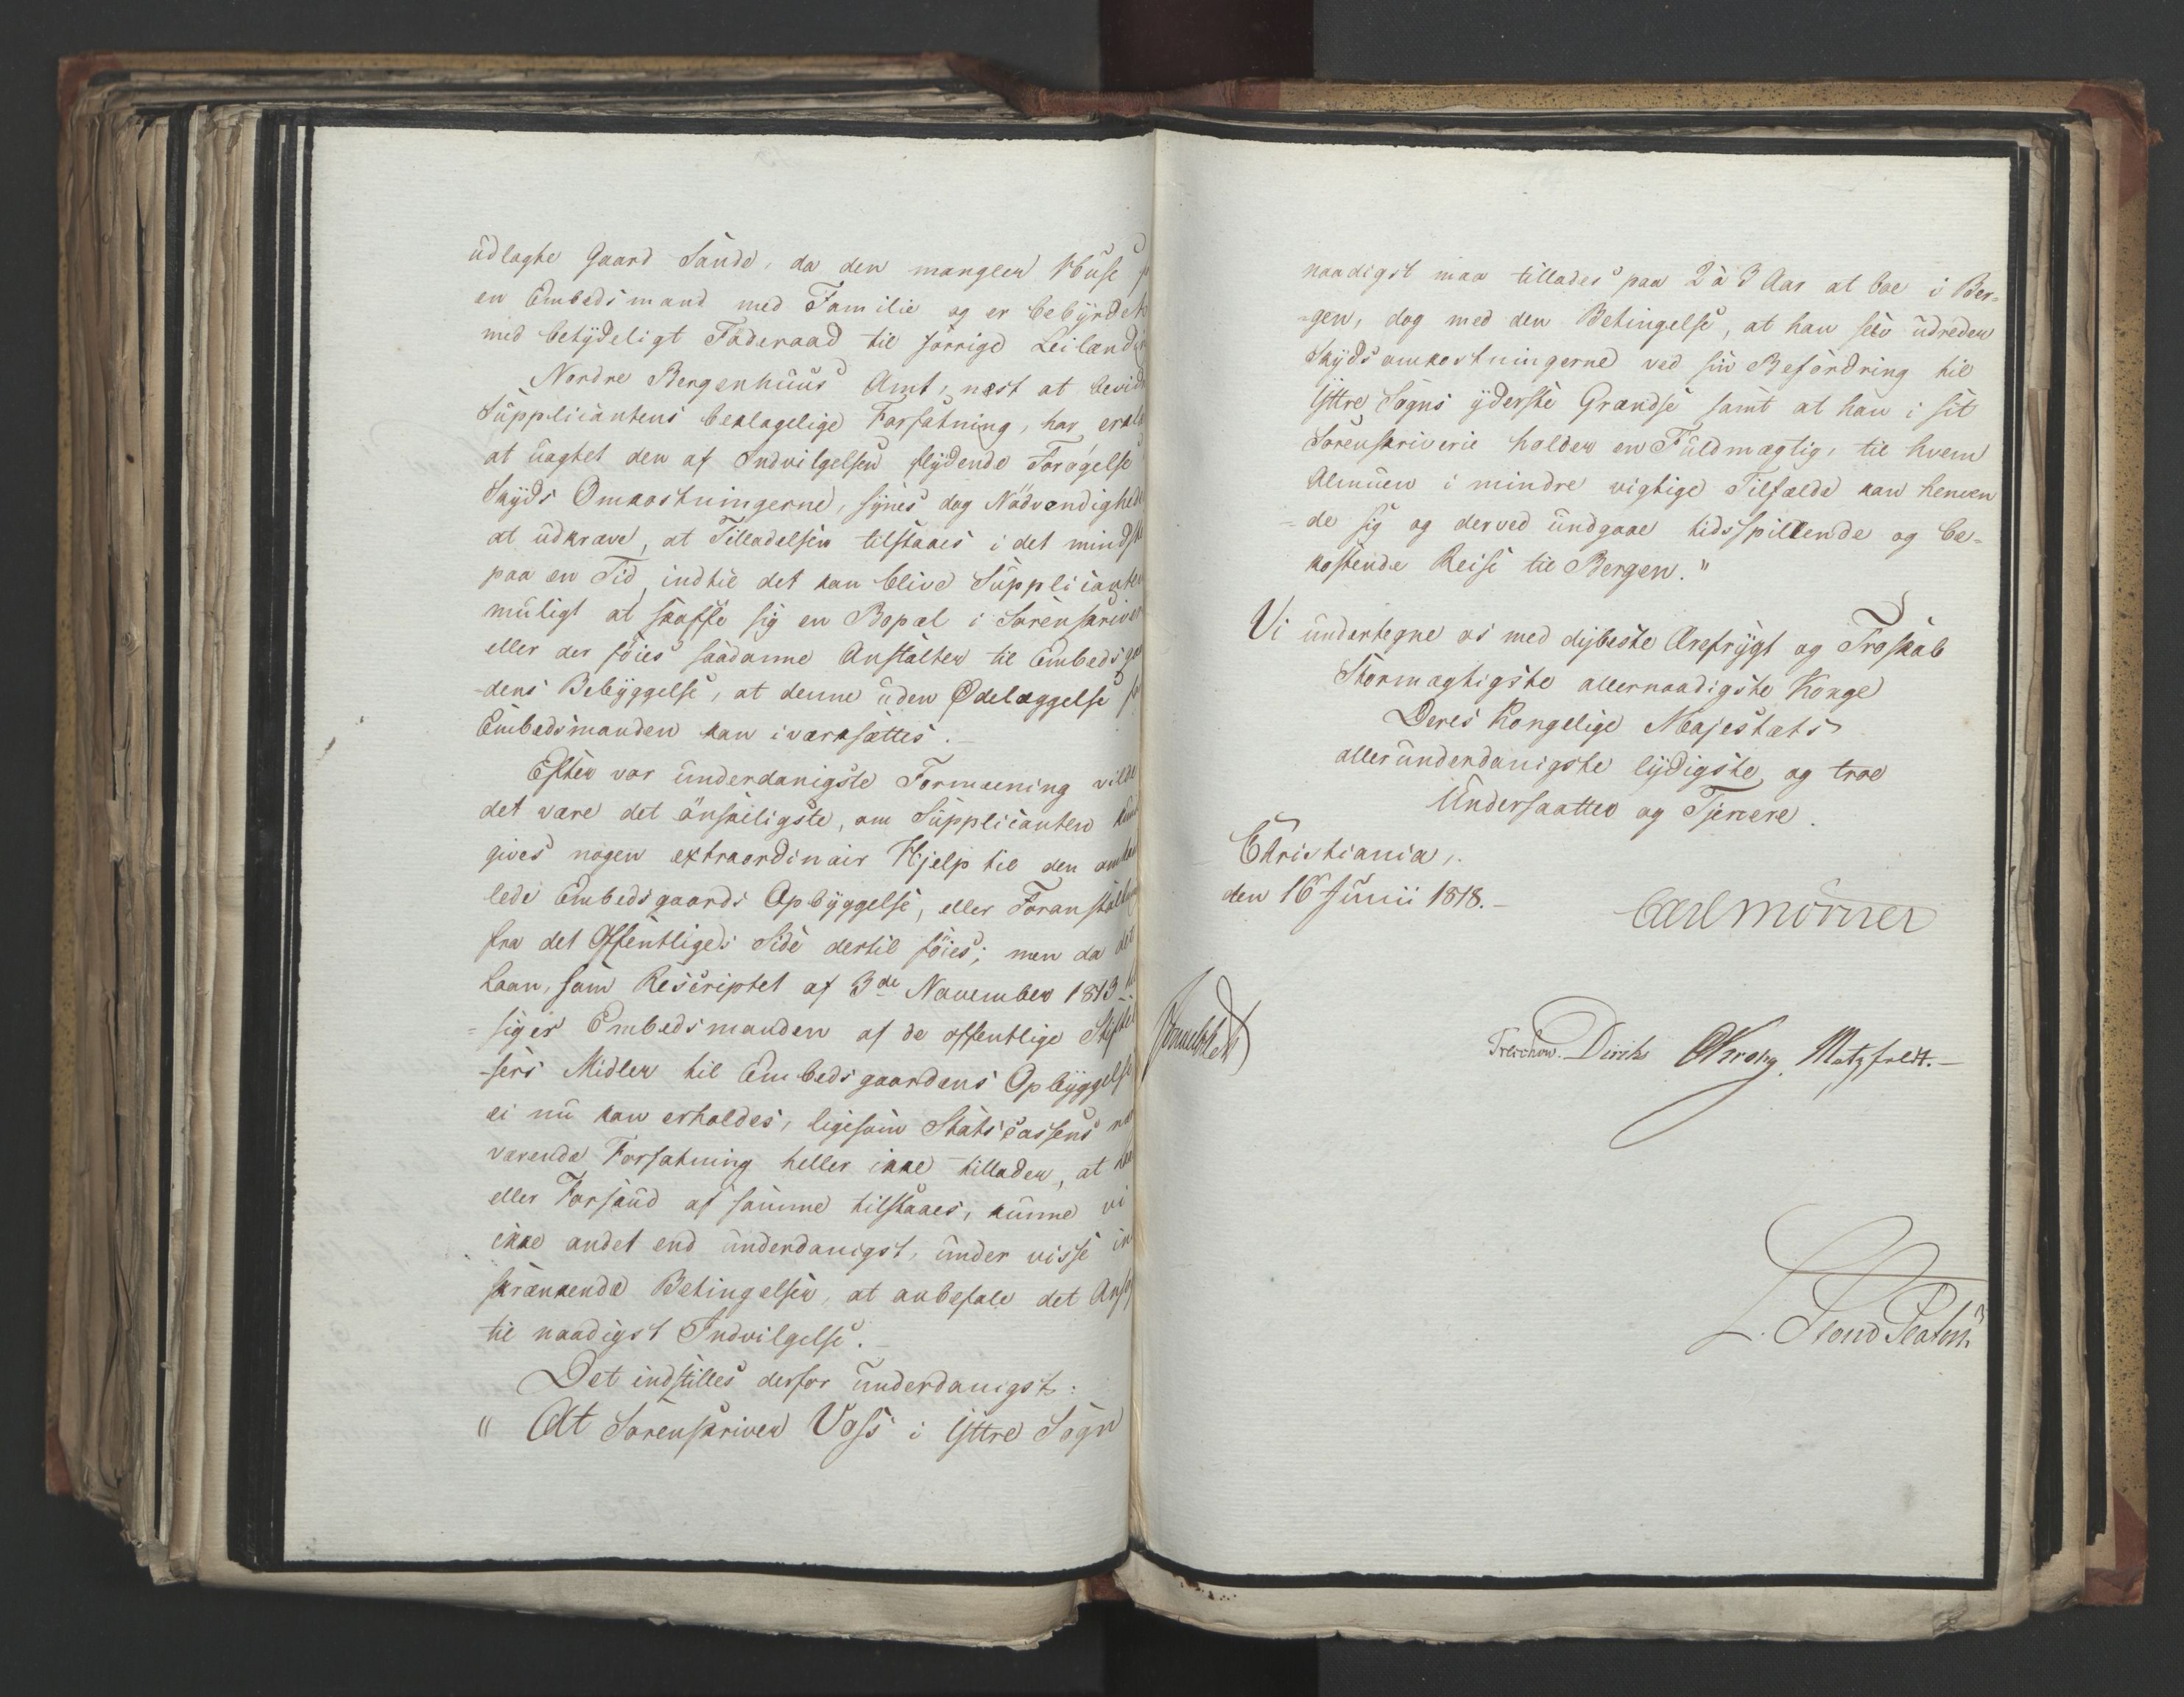 udlagte Gaard Sande, da den mangler Huse
en Embedsmand med Familie og er bebyrdet
med betydeligt Föderaad til forrige Leilænding
Nordre Bergenhuus Amt, næst at bevidne
Supplicantens beklagelige Forfatning, har erklæ
at uagtet den af Indvilgelsen flydende Forøgelse
Skyds Omkostningerne, synes dog Nödvendighede
at udkræve, at Tilladelsen tilstaaes i det mindste
paa en Tid, indtil det kan blive Supplicanten
muligt at skaffe sig en Bopæl i Sorenskriver
eller der föies saadanne Anstalter til Embedsgaar
-dens Bebyggelse, at denne uden Ødelæggelse for
Embedsmanden kan iværksættes.
Efter vor underdanigste Formeening vilde
det være det önskeligste, om Supplicanten kunde
gives nogen extraordinair Hjelp til den omhand
lede Embedsgaards Opbyggelse, eller Foranstaltning
fra det Offentliges Side dertil föies; men da det
Laan, som Rescriptet af 3de November 1813 til
=siger Embedsmanden af de offentlige Stiftel
-sers Midler til Embedsgaardens Opbyggelse
ei nu kan erholdes, ligesom Statscassens nær
værende Forfatning heller ikke tillader, at Laan
eller Forskud af samme tilstaaes, kunne vi
ikke andet end underdanigst, under visse ind
skrænkende Betingelser, at anbefale det Ansøg
til naadigst Indvilgelse.
Det indstilles derfor underdanigst:
" At Sorenskriver Voss i Yttre Sogn
naadigst maa tillades paa 2 à 3 Aar at boe i Ber=
=gen, dog med den Betingelse, at han selv udreder
Skydsomkostningerne ved sin Befordring til
Yttre Sogns yderste Grændse samt at han i sit
Sorenskriverie holder en Fuldmægtig, til hvem
Almuen i mindre vigtige Tilfælde kan henven
=de sig og derved undgaae tidsspillende og be=
kostende Reise til Bergen."
Vi undertegne os med dybeste Ærefrygt og Troskab
Stormægtigste allernaadigste Konge
Deres Kongelige Majestæts
allerunderdanigste lydigste og troe
Undersaatter og Tjenere.
Christiania,
den 16 Junii 1818.
Carl Mörner
Sommerhielm
Treschow. Diriks CKrohg. Motzfeldt.
L. Stoud Platou